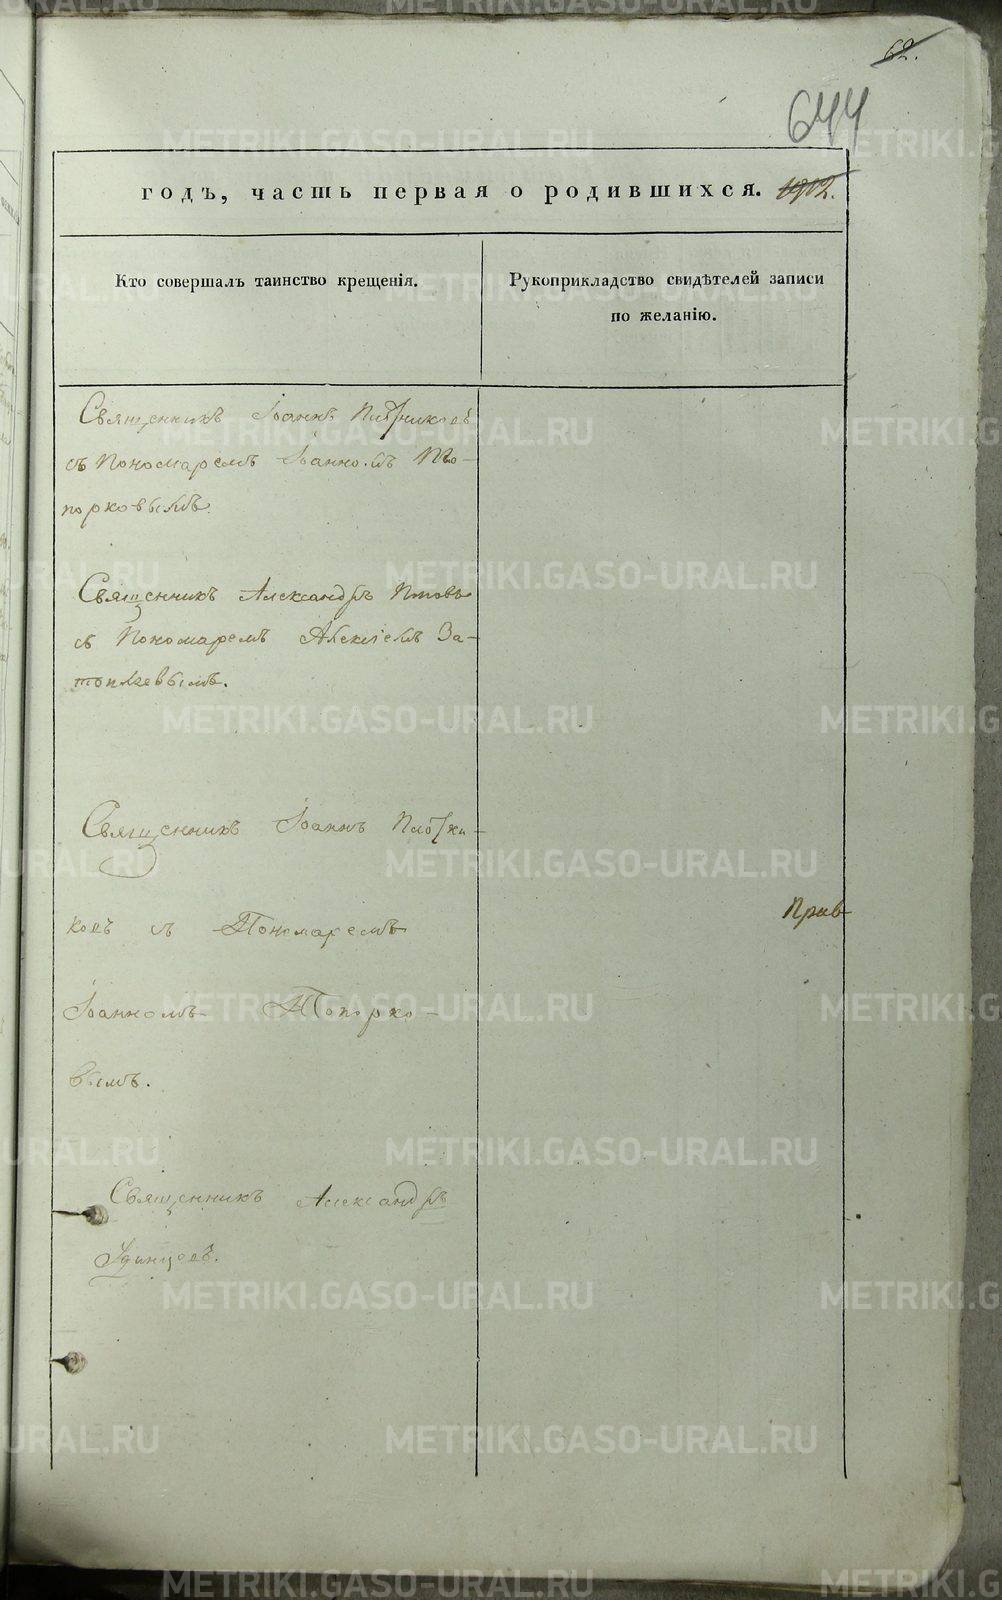 62.
644
годъ, часть первая о родившихся. 1912.
Кто совершалъ таинство крещенія.
Рукоприкладство свидѣтелей записи
по желанію.
Священникъ Іоаннъ Плотниковъ
съ Пономаремъ Іоанномъ То-
порковымъ.
Священникъ Александръ Поповъ
съ Пономаремъ Алексіемъ За-
топляевымъ.
Священникъ Іоаннъ Плотни-
ковъ съ Пономаремъ
Іоанномъ Топорко-
вымъ.
Священникъ Александръ
Удинцовъ.
METRIKI.GASO-URAL.RU